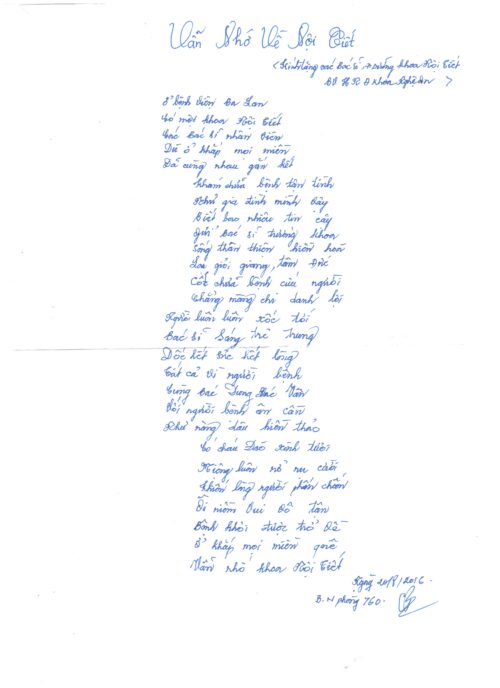 Vẫn Nhớ Về Nội Tiết
(Kính tặng các bác sĩ, khoa Nội Tiết
BV Đ Khoa Nghệ An)
Ở bệnh viện
Có một khoa Nội Tiết
Các bác sĩ nhân viên
Dù ở khắp mọi miền
Đã cùng nhau gắn kết
Khám chữa bệnh tận tình
Như gia đình mình vậy
Biết bao nhiêu tin cậy
bác sĩ trưởng khoa
Sống thân thiện hiền hoà
giỏi giang, tâm đức
Cốt chữa bệnh cứu người
Chẳng màng chi danh lợi
Người luôn luôn xốc tới
Bác sĩ Sáng trẻ trung
Dốc hết sức hết lòng
Tất cả vì người bệnh
Cùng bác Vân
Với người bệnh ân cần
Như nàng dâu hiền thảo
Có cháu xinh tươi
Miệng luôn nở nụ cười
Khiến lòng người phấn chấn
Ôi niềm vui vô tận
Bệnh khỏi được trở về
Ở khắp mọi miền quê
Vẫn nhớ khoa Nội Tiết
Ngày 20/8/2016
B.N phòng 760